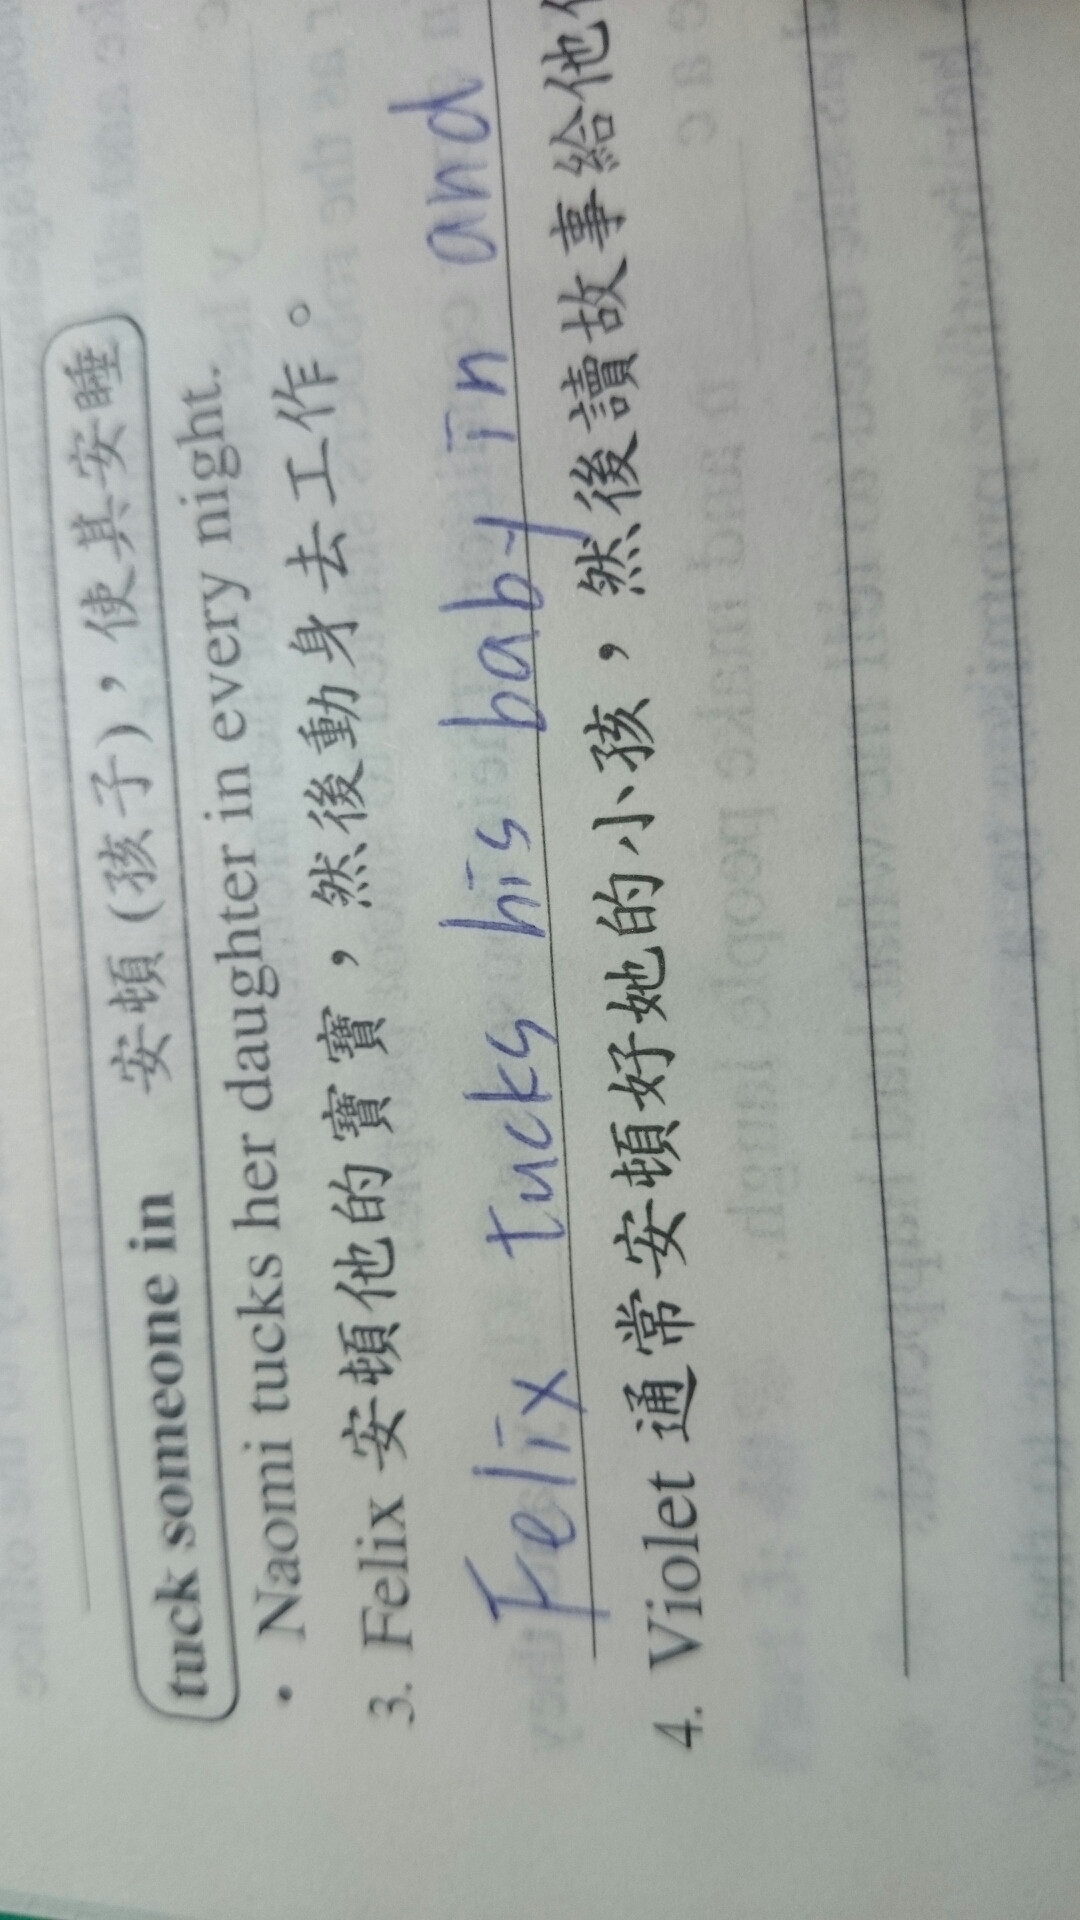 tuck someone in 安頓(孩子)，使其安睡
• Naomi tucks her daughter in every night.
3. Felix 安頓他的寶寶，然後動身去工作。
Felix tucks his baby in and
4. Violet 通常安頓好她的小孩，然後讀故事給他